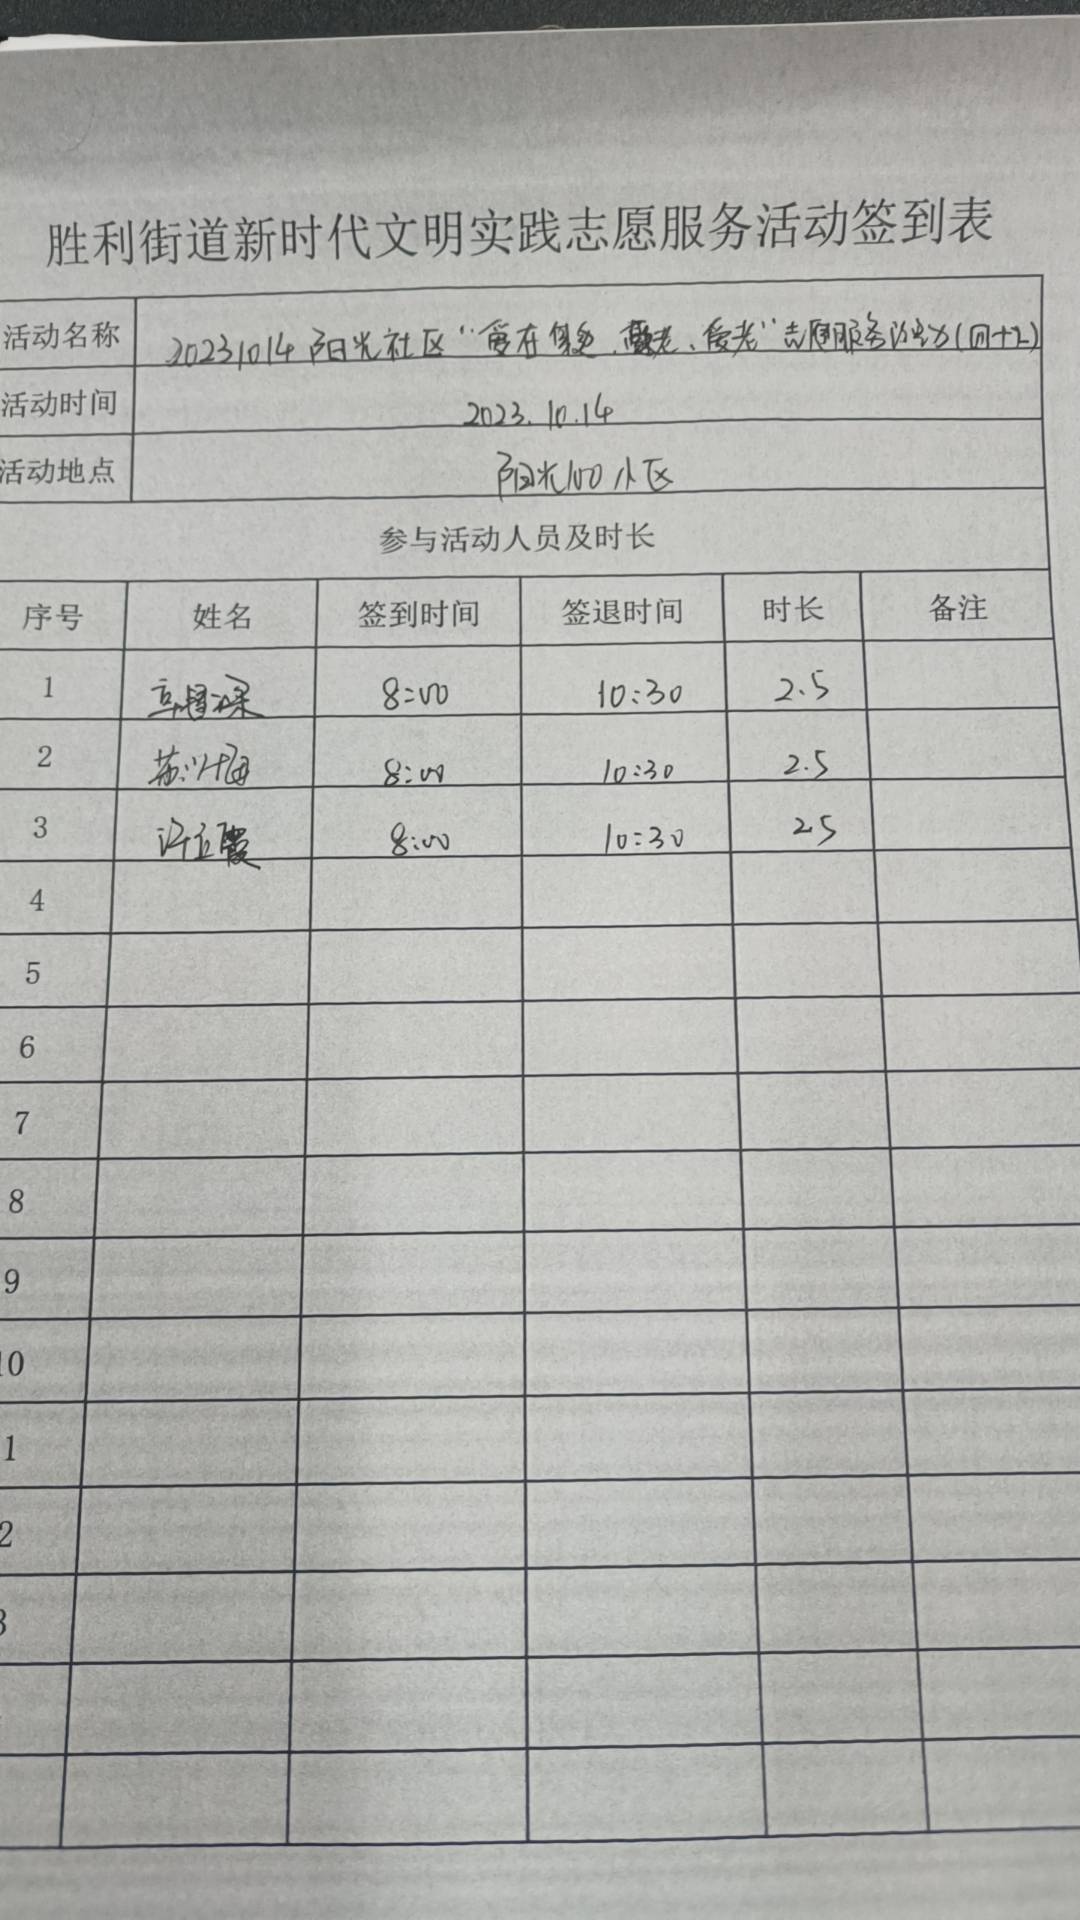 胜利街道新时代文明实践志愿服务活动签到表
活动名称 20231014阳光社区“爱在身边、敬老、爱老”志愿服务活动(四十二)
活动时间 2023.10.14
活动地点 阳光100小区
参与活动人员及时长
序号 姓名 签到时间 签退时间 时长 备注
1 8:00 10:30 2.5
2 8:00 10:30 2.5
3 8:00 10:30 2.5
4
5
6
7
8
9
10
1
2
3